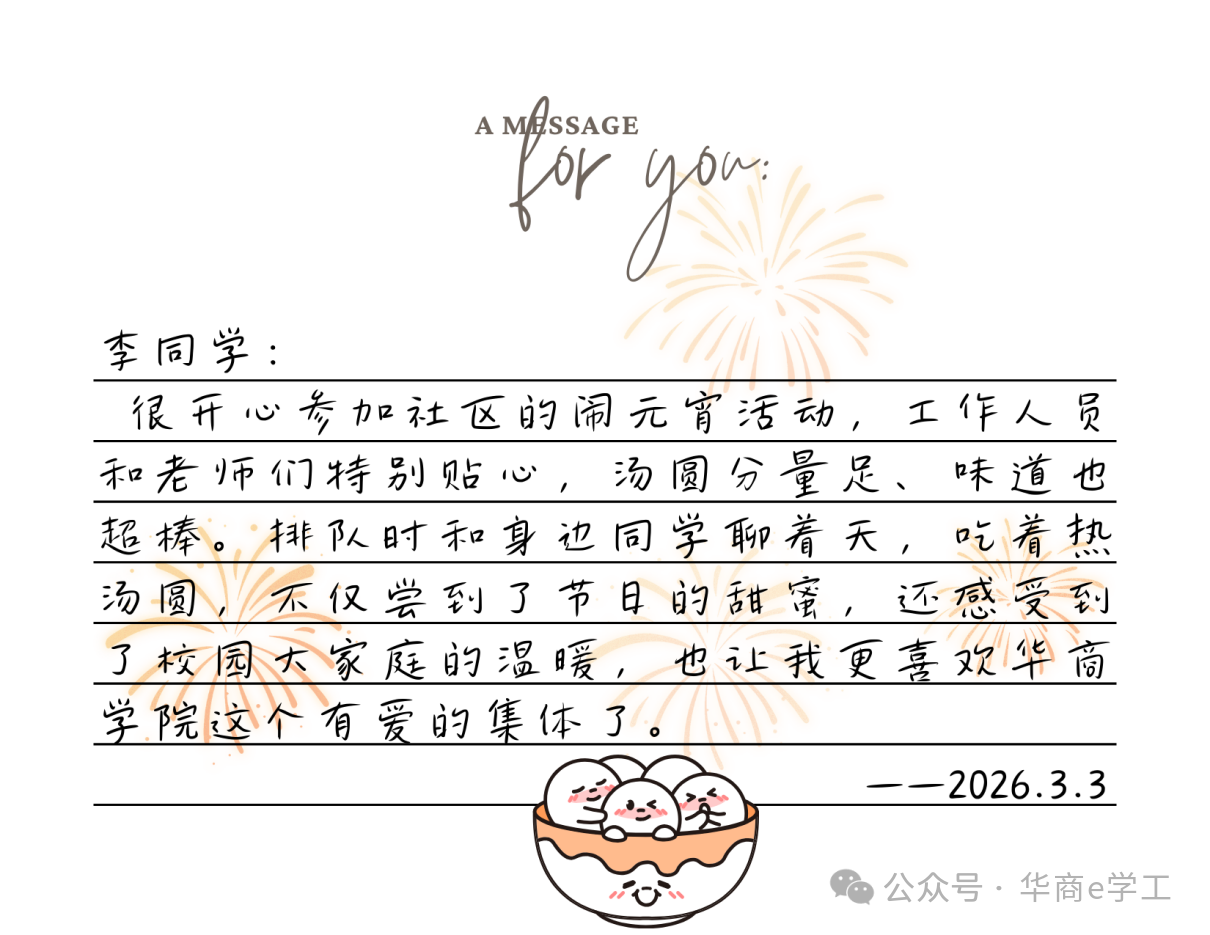 A MESSAGE
for you:
李同学：
很开心参加社区的闹元宵活动，工作人员
和老师们特别贴心，汤圆分量足、味道也
超棒。排队时和身边同学聊着天，吃着热
汤圆，不仅尝到了节日的甜蜜，还感受到
了校园大家庭的温暖，也让我更喜欢华商
学院这个有爱的集体了。
——2026.3.3
公众号·华商e学工